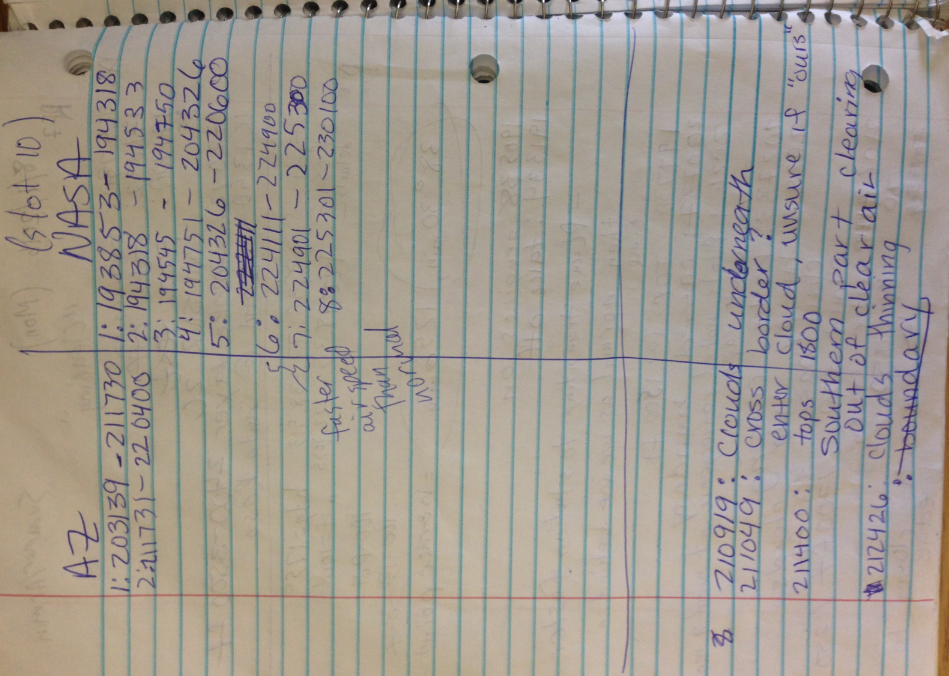 (slot 10)
AZ NASA
1: 203139 - 211730 1: 193853 - 194318
2: 211731 - 220400 2: 194318 - 194533
3: 194545 - 194750
4: 194751 - 204326
5: 204326 - 220600
6: 224111 - 224900
7: 224901 - 225300
faster 8: 225301 - 230100
air speed
than
normal
210919: Clouds underneath
211049: cross border?
enter cloud, unsure if "ours"
211400: tops 1800
Southern part clearing
out of clear air
212426: clouds thinning
: boundary